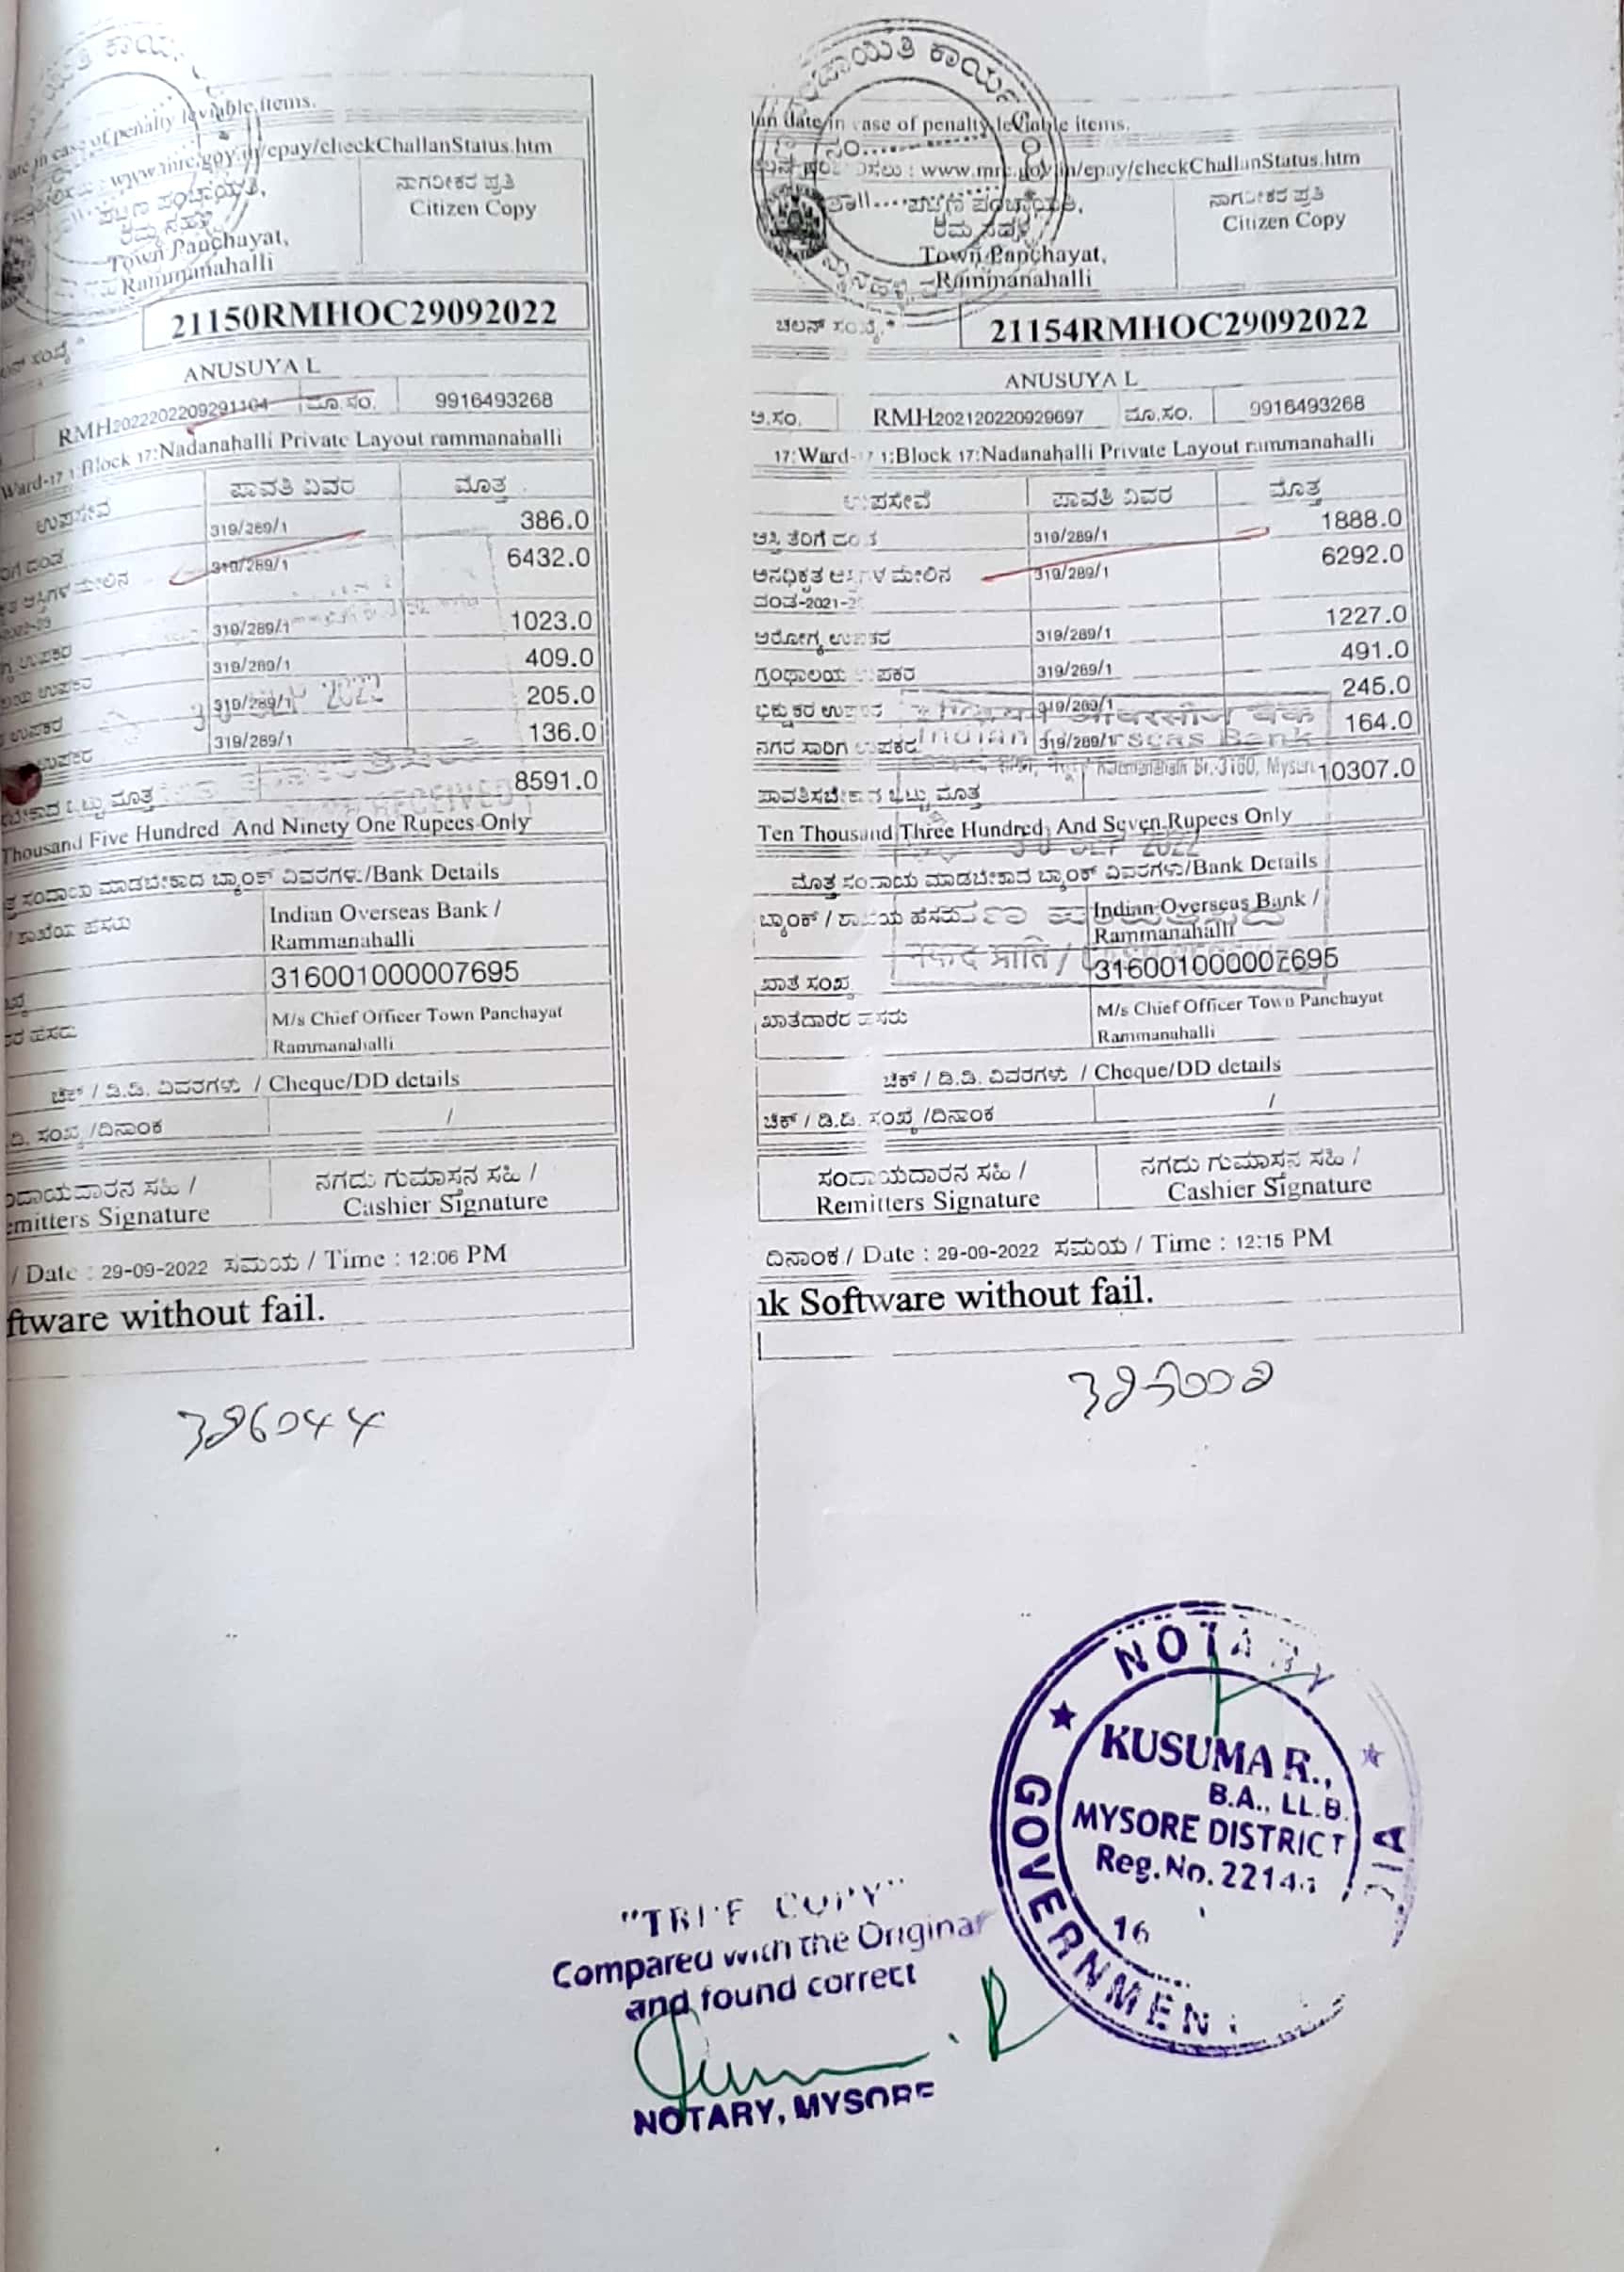 are in case of penalty leviable items.
/epay/checkChallanStatus.htm
ಪಟ್ಟಣ ಪಂಚಾಯತಿ,
ನಾಗರೀಕರ ಪ್ರತಿ
Citizen Copy
Town Panchayat,
Rammanahalli
21150RMHOC29092022
ANUSUYA L
RMH2022202209291104 ಮೊ.ಸಂ. 9916493268
Ward-17 1:Block 17:Nadanahalli Private Layout rammanahalli
ಉಪಸೇವೆ ಪಾವತಿ ವಿವರ ಮೊತ್ತ
319/289/1 386.0
319/289/1 6432.0
ಆಸ್ತಿಗಳ ಮೇಲಿನ
319/289/1 1023.0
ಉಪಕರ 319/289/1 409.0
ಉಪಕರ 319/289/1 205.0
ಉಪಕರ 319/289/1 136.0
ಒಟ್ಟು ಮೊತ್ತ 8591.0
Thousand Five Hundred And Ninety One Rupees Only
ಸಂದಾಯ ಮಾಡಬೇಕಾದ ಬ್ಯಾಂಕ್ ವಿವರಗಳು/Bank Details
/ ಶಾಖೆಯ ಹೆಸರು Indian Overseas Bank /
Rammanahalli
316001000007695
ಹೆಸರು M/s Chief Officer Town Panchayat
Rammanahalli
ಚೆಕ್ / ಡಿ.ಡಿ. ವಿವರಗಳು / Cheque/DD details
ಡಿ. ಸಂಖ್ಯೆ /ದಿನಾಂಕ /
ಸಹಿ / ನಗದು ಗುಮಾಸ್ತನ ಸಹಿ /
emitters Signature Cashier Signature
/ Date : 29-09-2022 ಸಮಯ / Time : 12:06 PM
ftware without fail.
386044
lan date in case of penalty leviable items.
www.mrc.gov.in/epay/checkChallanStatus.htm
ಪಟ್ಟಣ ಪಂಚಾಯತಿ,
ನಾಗರೀಕರ ಪ್ರತಿ
Citizen Copy
Town Panchayat,
Rammanahalli
ಚಲನ್ ಸಂಖ್ಯೆ * 21154RMHOC29092022
ANUSUYA L
ಅ.ಸಂ. RMH202120220929697 ಮೊ.ಸಂ. 9916493268
17:Ward-17 1:Block 17:Nadanahalli Private Layout rammanahalli
ಉಪಸೇವೆ ಪಾವತಿ ವಿವರ ಮೊತ್ತ
ಆಸ್ತಿ ತೆರಿಗೆ ದಂಡ 319/289/1 1888.0
ಅನಧಿಕೃತ ಆಸ್ತಿಗಳ ಮೇಲಿನ 319/289/1 6292.0
ದಂಡ-2021-2
ಆರೋಗ್ಯ ಉಪಕರ 319/289/1 1227.0
ಗ್ರಂಥಾಲಯ ಉಪಕರ 319/289/1 491.0
ಭಿಕ್ಷುಕರ ಉಪಕರ 319/289/1 245.0
ನಗರ ಸಾರಿಗೆ ಉಪಕರ 319/289/1 164.0
ಪಾವತಿಸಬೇಕಾದ ಒಟ್ಟು ಮೊತ್ತ 10307.0
Ten Thousand Three Hundred And Seven Rupees Only
30 SEP 2022
ಮೊತ್ತ ಸಂದಾಯ ಮಾಡಬೇಕಾದ ಬ್ಯಾಂಕ್ ವಿವರಗಳು/Bank Details
ಬ್ಯಾಂಕ್ / ಶಾಖೆಯ ಹೆಸರು Indian Overseas Bank /
Rammanahalli
ಖಾತೆ ಸಂಖ್ಯೆ 316001000007695
ಖಾತೆದಾರರ ಹೆಸರು M/s Chief Officer Town Panchayat
Rammanahalli
ಚೆಕ್ / ಡಿ.ಡಿ. ವಿವರಗಳು / Cheque/DD details
ಚೆಕ್ / ಡಿ.ಡಿ. ಸಂಖ್ಯೆ /ದಿನಾಂಕ /
ಸಂದಾಯದಾರನ ಸಹಿ / ನಗದು ಗುಮಾಸ್ತನ ಸಹಿ /
Remitters Signature Cashier Signature
ದಿನಾಂಕ / Date : 29-09-2022 ಸಮಯ / Time : 12:15 PM
nk Software without fail.
NOTARY
KUSUMA R.,
B.A., LL.B.
MYSORE DISTRICT
Reg.No.
GOVERNMENT
"TRUE COPY"
Compared with the Original
and found correct
NOTARY, MYSORE